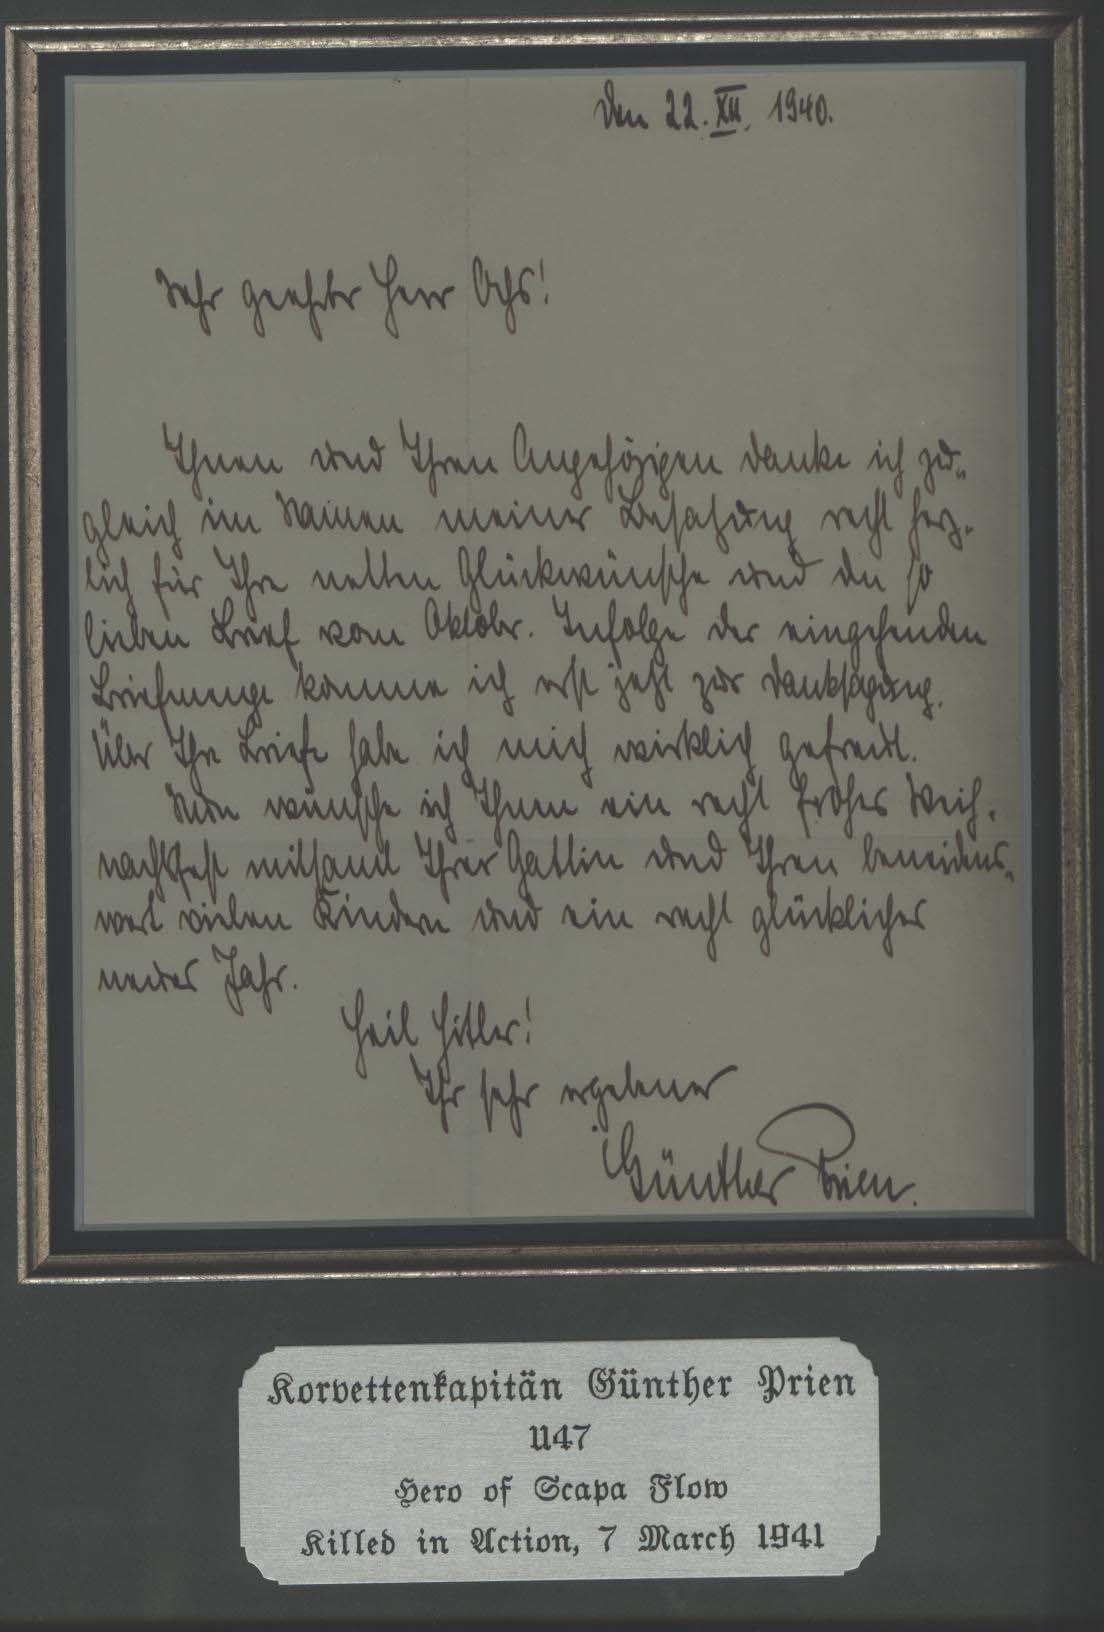 Den 22. XII. 1940.
Sehr geehrter Herr Ochs!
Ihnen und Ihren Angehörigen danke ich zu-
gleich im Namen meiner Besatzung recht herz-
lich für Ihre netten Glückwünsche und den so
lieben Brief vom Oktober. Infolge der eingehenden
Briefmenge komme ich erst jetzt zur Danksagung.
Über Ihre Briefe habe ich mich wirklich gefreut.
Nun wünsche ich Ihnen ein recht frohes Weih-
nachtsfest mitsamt Ihrer Gattin und Ihren beneidens-
wert vielen Kindern und ein recht glückliches
neues Jahr.
Heil Hitler!
Ihr sehr ergebener
Günther Prien.
Korvettenkapitän Günther Prien
U47
Hero of Scapa Flow
Killed in Action, 7 March 1941